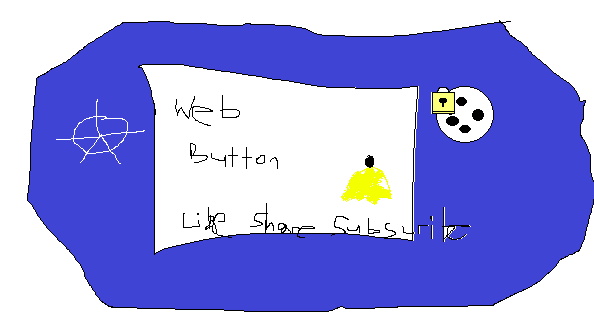 Web
Button
Like Share Subscribe